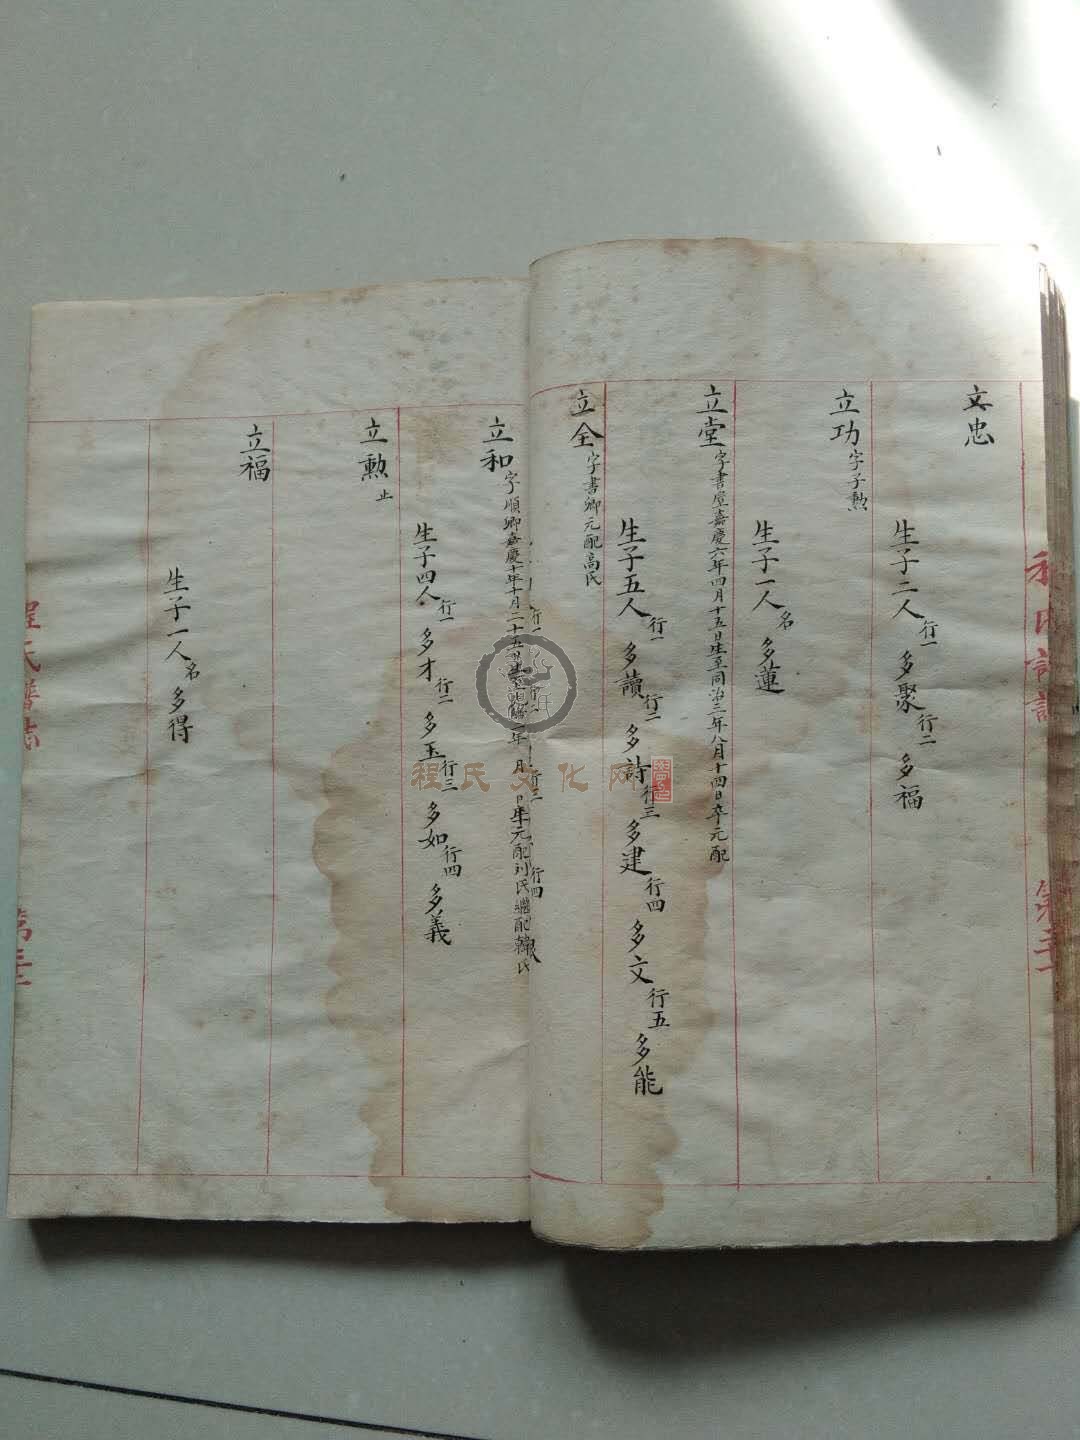 文忠
生子二人 行一 多聚 行二 多福
立功 字子勲
生子一人 名 多蓮
立堂 字書屋嘉慶六年四月十五日生至同治三年八月十四日卒元配
生子五人 行一 多讀 行二 多詩 行三 多建 行四 多文 行五 多能
立全 字書卿元配高氏
立和 字順卿嘉慶十年十月二十五日生 年 月 日卒元配刘氏繼配韓氏
生子四人 行一 多才 行二 多玉 行三 多如 行四 多義
立勲 止
立福
生子一人 名 多得
程氏譜誌
程氏文化网